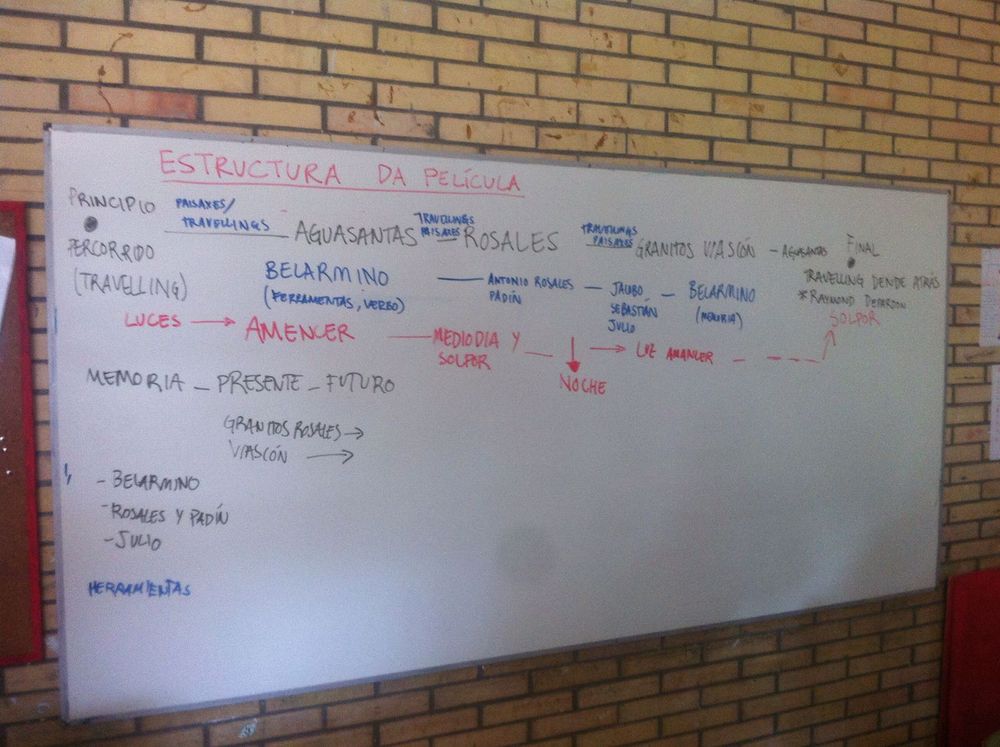 ESTRUCTURA DA PELÍCULA
PRINCIPIO
PERCORRIDO
(TRAVELLING)
PAISAXES/
TRAVELLINGS — AGUASANTAS
TRAVELLINGS
PAISAXES — ROSALES
TRAVELLINGS
PAISAXES GRANITOS VIASCÓN — AGUASANTAS
FINAL
TRAVELLING DENDE ATRÁS
* RAYMOND DEPARDON
BELARMINO
(FERRAMENTAS, VERBO)
ANTONIO ROSALES
PADÍN
JACOBO
SEBASTIÁN
JULIO
BELARMINO
(MEMORIA)
LUCES → AMENCER — MEDIODIA Y
SOLPOR
NOCHE
→ LUZ AMANCER
SOLPOR
MEMORIA — PRESENTE — FUTURO
GRANITOS ROSALES →
VIASCÓN →
- BELARMINO
- ROSALES Y PADÍN
- JULIO
HERRAMIENTAS